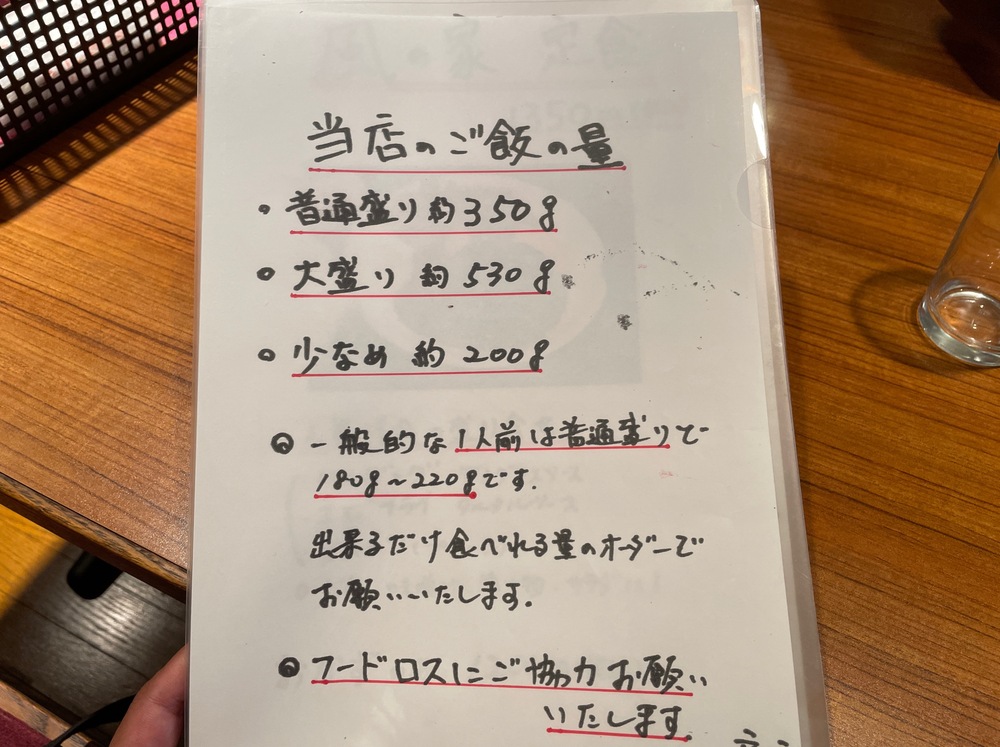 当店のご飯の量
・普通盛り約350g
・大盛り 約530g
・少なめ 約200g
◉一般的な1人前は普通盛りで
180g〜220gです.
出来るだけ食べれる量のオーダーで
お願いいたします.
◉フードロスにご協力お願い
いたします.